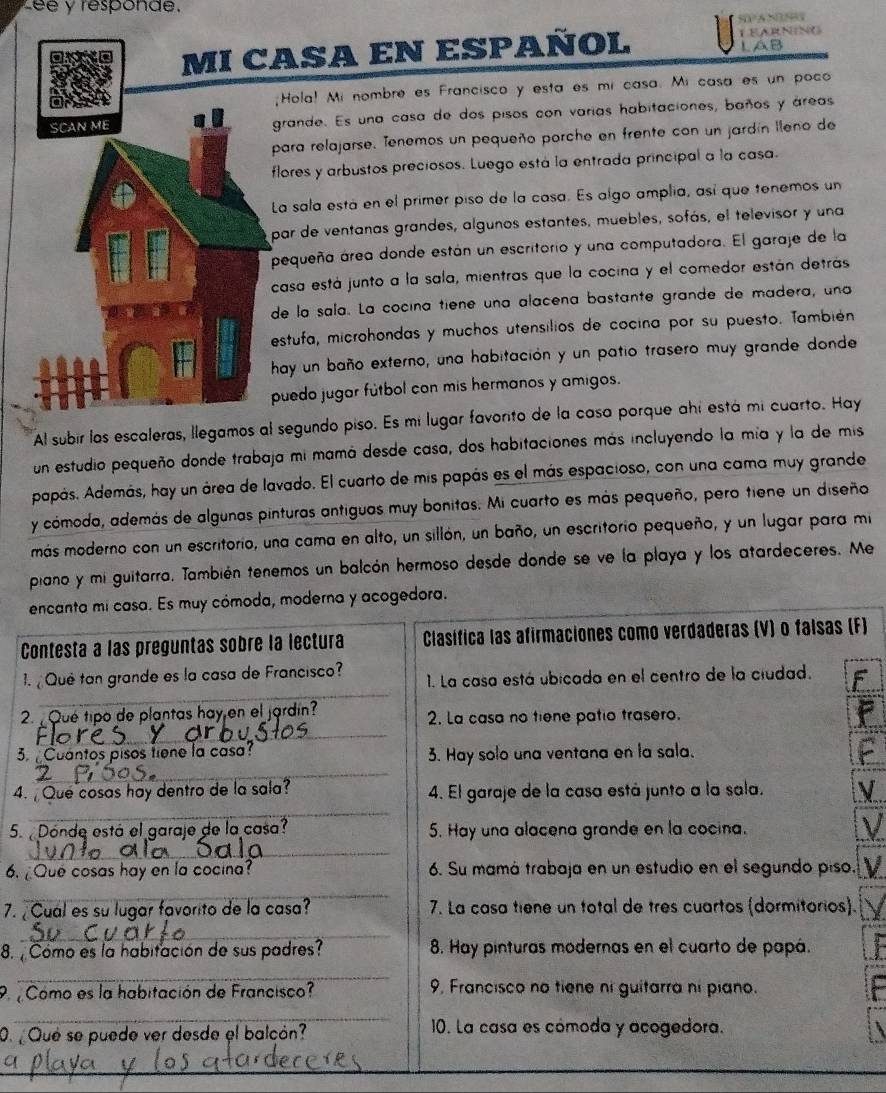 ee y responde.
SPANISH
LEARNING
LAB
MI CASA EN ESPAÑOL
SCAN ME
¡Hola! Mi nombre es Francisco y esta es mi casa. Mi casa es un poco
grande. Es una casa de dos pisos con varias habitaciones, baños y áreas
para relajarse. Tenemos un pequeño porche en frente con un jardín lleno de
flores y arbustos preciosos. Luego está la entrada principal a la casa.
La sala está en el primer piso de la casa. Es algo amplia, así que tenemos un
par de ventanas grandes, algunos estantes, muebles, sofás, el televisor y una
pequeña área donde están un escritorio y una computadora. El garaje de la
casa está junto a la sala, mientras que la cocina y el comedor están detrás
de la sala. La cocina tiene una alacena bastante grande de madera, una
estufa, microhondas y muchos utensilios de cocina por su puesto. También
hay un baño externo, una habitación y un patio trasero muy grande donde
puedo jugar fútbol con mis hermanos y amigos.
Al subir las escaleras, llegamos al segundo piso. Es mi lugar favorito de la casa porque ahí está mi cuarto. Hay
un estudio pequeño donde trabaja mi mamá desde casa, dos habitaciones más incluyendo la mía y la de mis
papás. Además, hay un área de lavado. El cuarto de mis papás es el más espacioso, con una cama muy grande
y cómoda, además de algunas pinturas antiguas muy bonitas. Mi cuarto es más pequeño, pero tiene un diseño
más moderno con un escritorio, una cama en alto, un sillón, un baño, un escritorio pequeño, y un lugar para mi
piano y mi guitarra. También tenemos un balcón hermoso desde donde se ve la playa y los atardeceres. Me
encanta mi casa. Es muy cómoda, moderna y acogedora.
Contesta a las preguntas sobre la lectura
1. ¿Qué tan grande es la casa de Francisco?
2. ¿Qué tipo de plantas hay en el jardín?
Flores y arbustos
3. ¿Cuántos pisos tiene la casa?
2 Pisos.
4. ¿Qué cosas hay dentro de la sala?
5. ¿Dónde está el garaje de la casa?
Junto a la Sala
6. ¿Qué cosas hay en la cocina?
7. ¿Cuál es su lugar favorito de la casa?
Su cuarto
8. ¿Cómo es la habitación de sus padres?
9. ¿Cómo es la habitación de Francisco?
0. ¿Qué se puede ver desde el balcón?
a playa y los atardereres
Clasifica las afirmaciones como verdaderas (V) o falsas (F)
1. La casa está ubicada en el centro de la ciudad. F
2. La casa no tiene patio trasero. F
3. Hay solo una ventana en la sala. F
4. El garaje de la casa está junto a la sala. V
5. Hay una alacena grande en la cocina. V
6. Su mamá trabaja en un estudio en el segundo piso. V
7. La casa tiene un total de tres cuartos (dormitorios). V
8. Hay pinturas modernas en el cuarto de papá. F
9. Francisco no tiene ni guitarra ni piano. F
10. La casa es cómoda y acogedora.